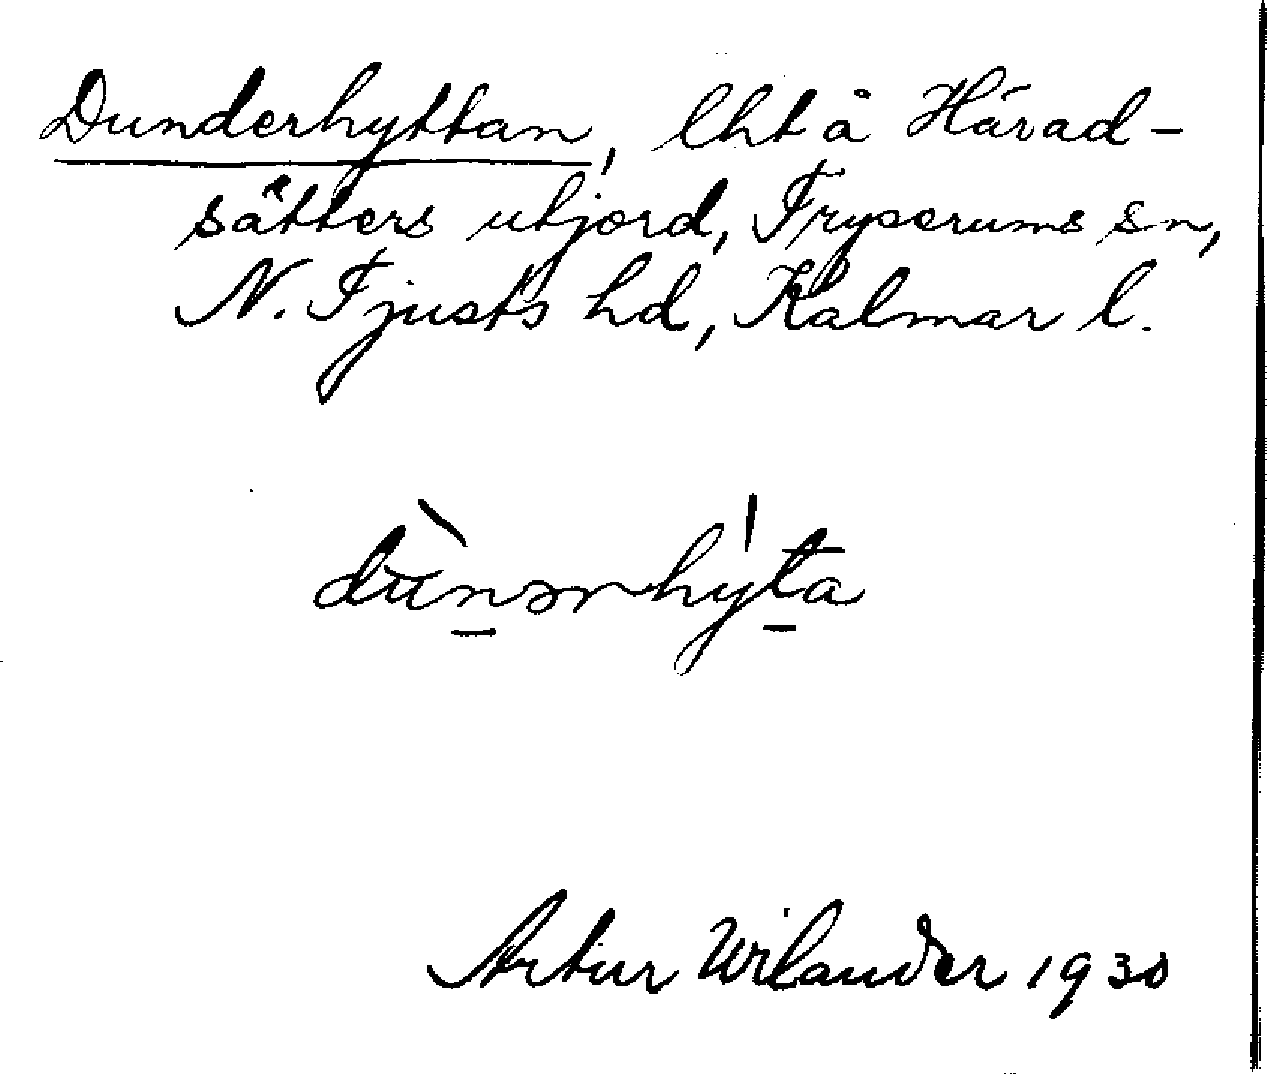 Dunderhyttan, lht å Härad-
sätters utjord, Tryserums sn,
N. Tjusts hd, Kalmar l.
dùnərhýta
Artur Wilander 1930